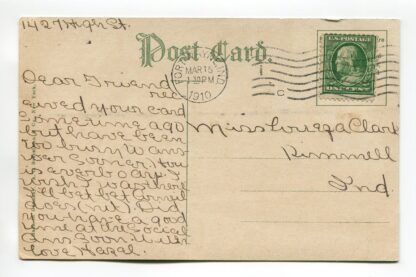 1427 High St.
Post Card.
FORT WAYNE, IND
MAR 15
1 30 PM
1910
U.S. POSTAGE
ONE CENT
Dear Friend
rec
eived your card
sometime ago
but have been
too busy to ans
wer sooner, for
is everbody. I
wish I was thro
you have a good
time at the Social
Ans Soon. With
love Hazel.
Miss Clark
Kimmell
Ind